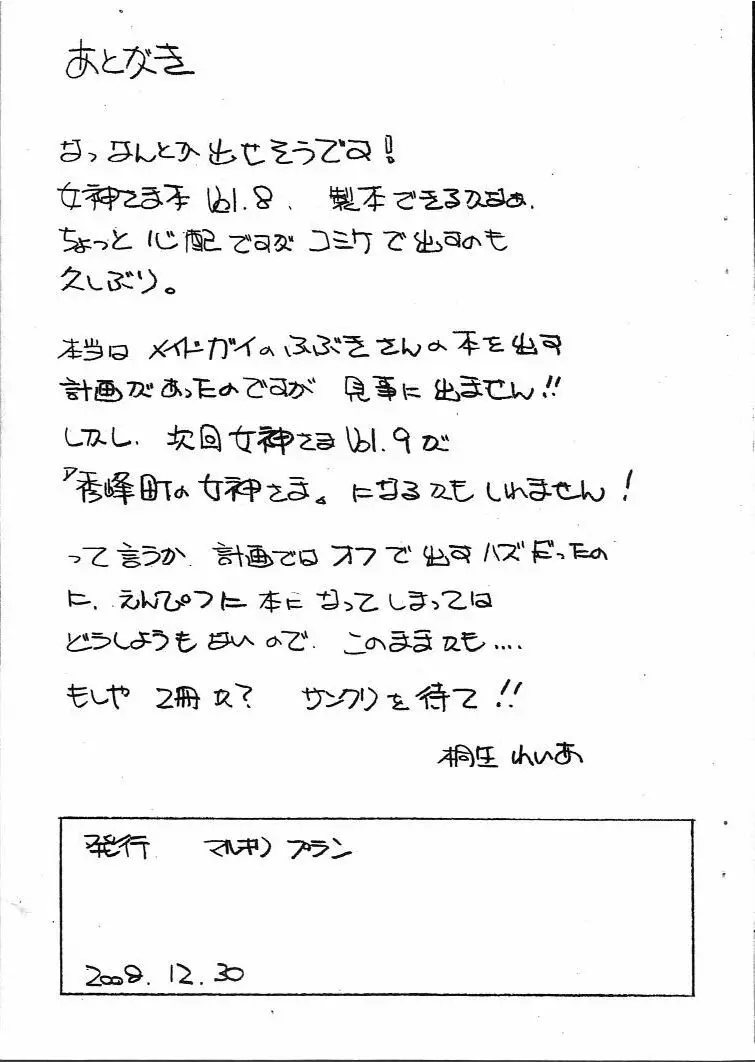 あとがき
なっなんとか出せそうです!
女神さま本 Vol.8、製本できるかなぁ、
ちょっと心配ですが コミケで出すのも
久しぶり。
本当は メイドガイのふぶきさんの本を出す
計画があったのですが 見事に出ません!!
しかし、次回女神さま Vol.9 が
『秀峰町の女神さま』になるかもしれません!
って言うか 計画ではオフで出すハズだったの
に、えんぴつに本になってしまっては
どうしようもないので、このままかも....
もしや 2冊か? サンクリを待て!!
桐生 れいあ
発行 マルキ プラン
2008.12.30